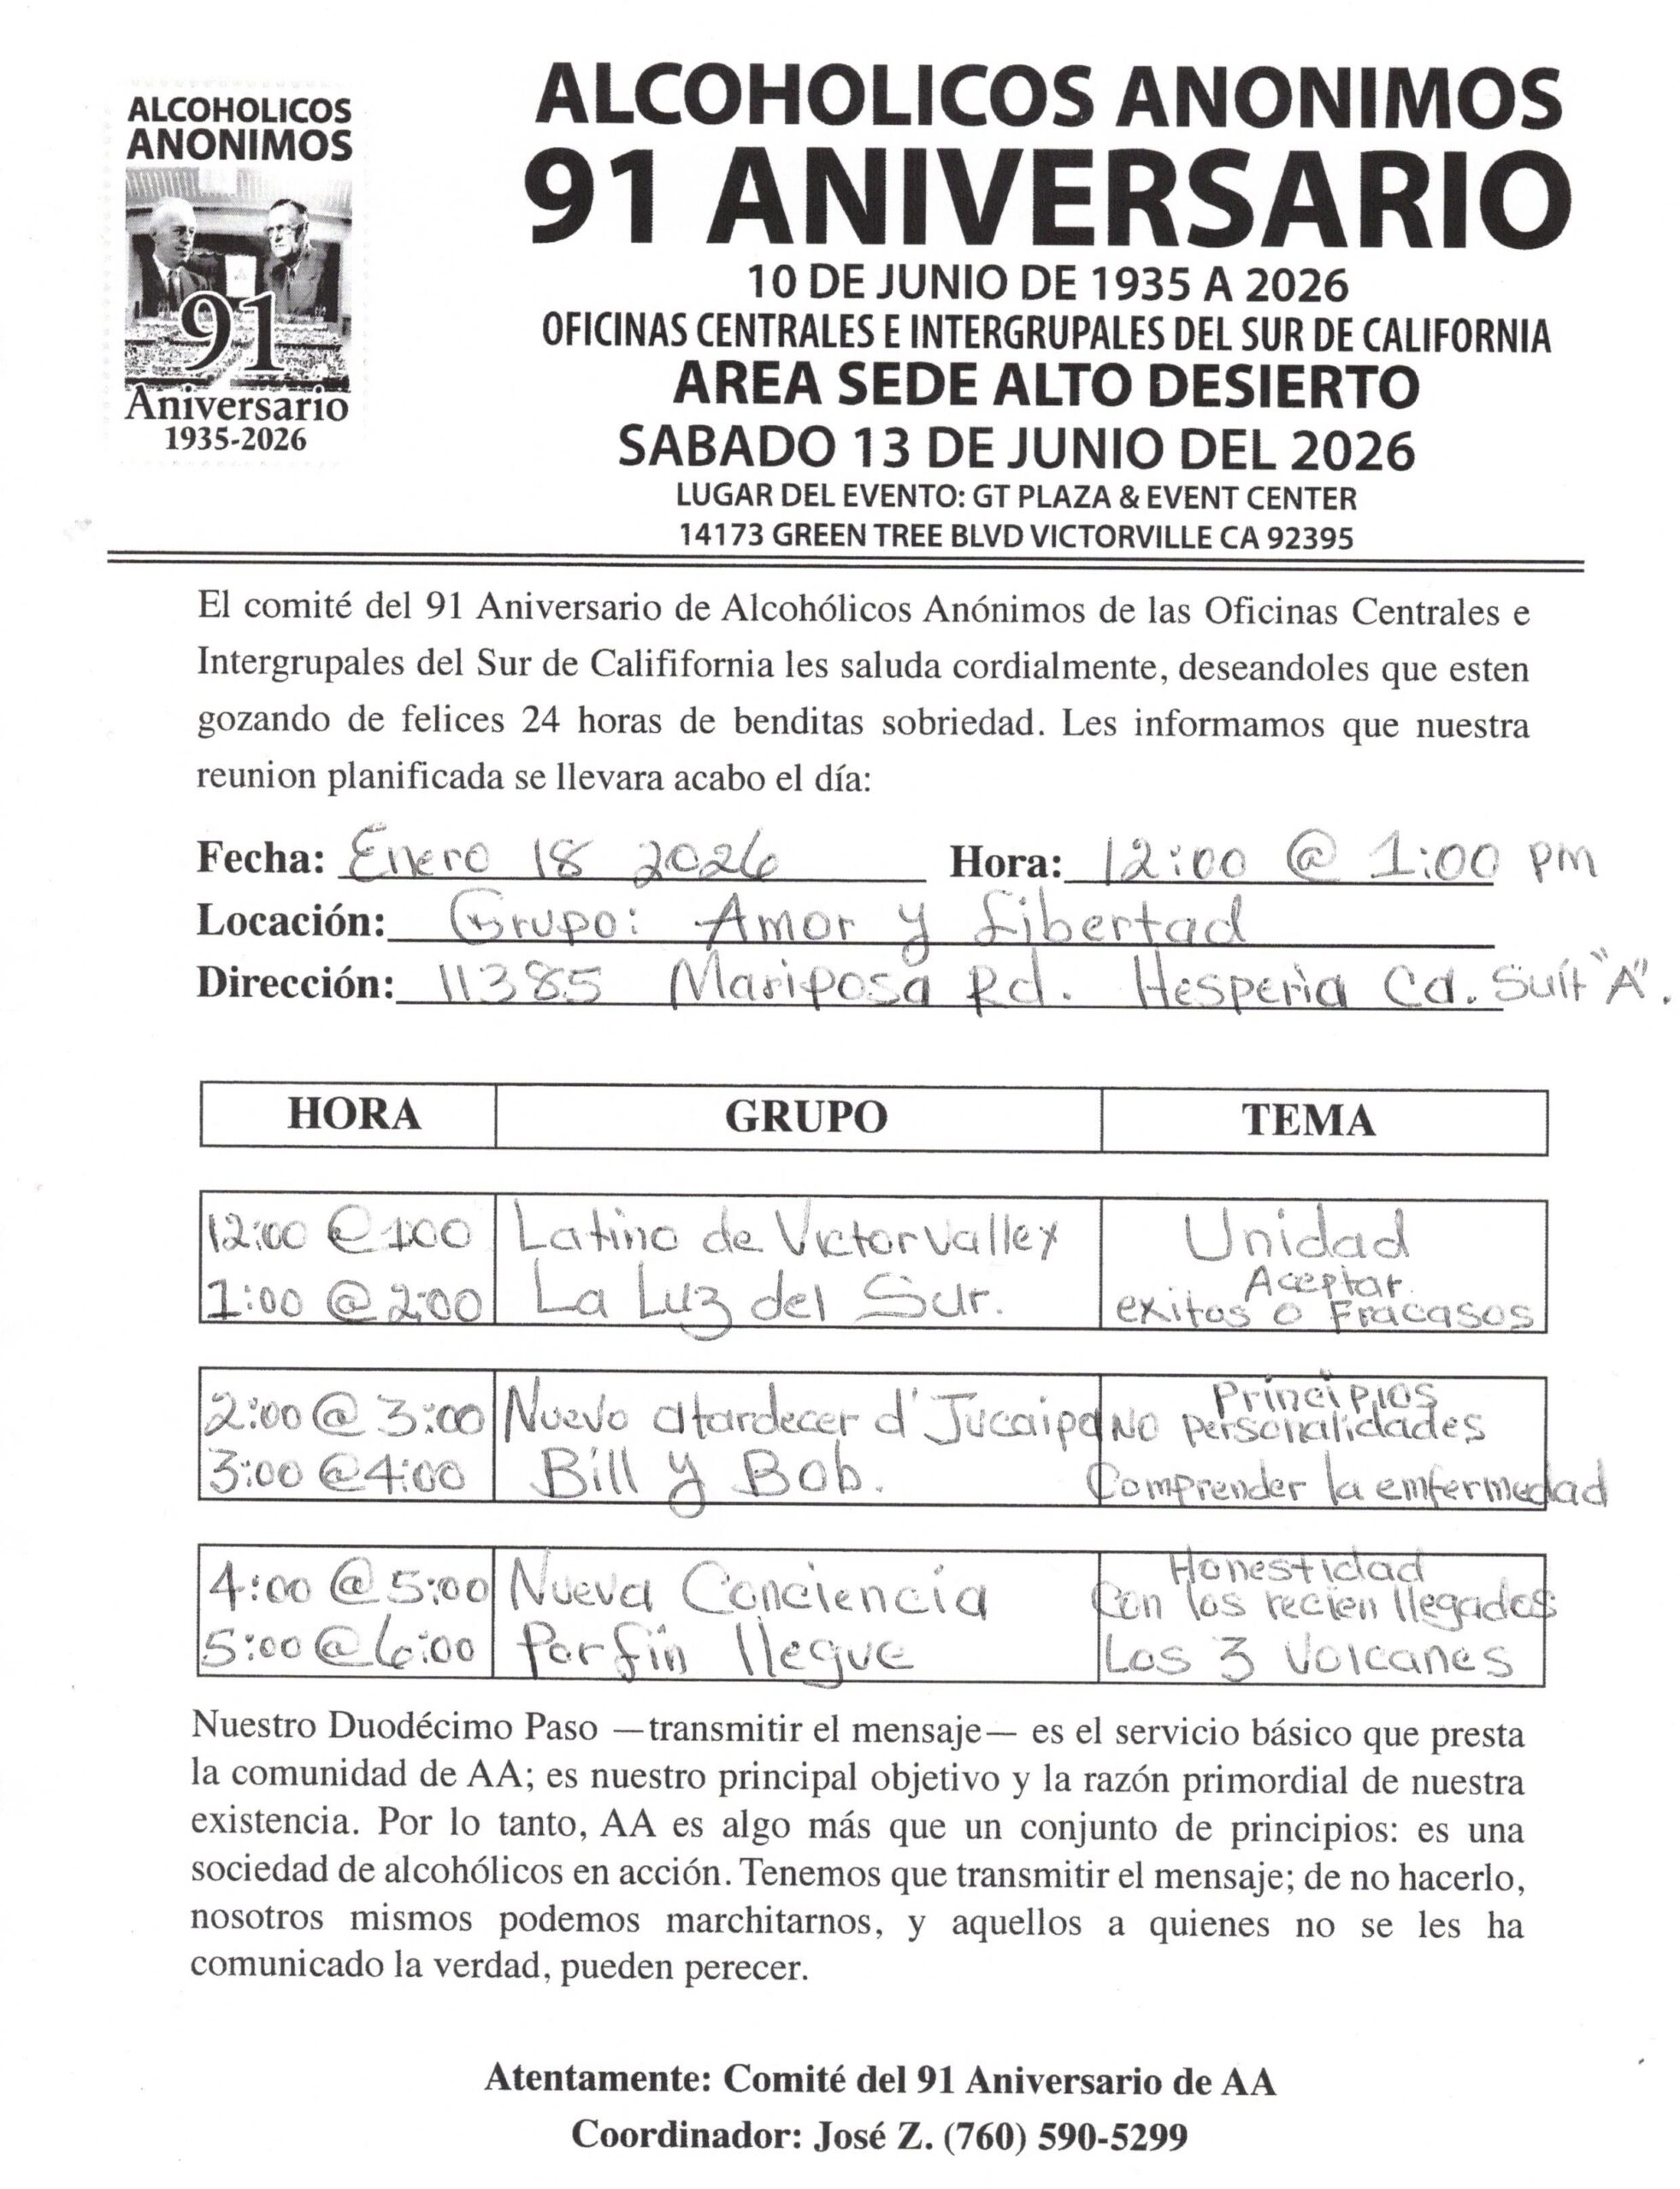 ALCOHOLICOS
ANONIMOS
91
Aniversario
1935-2026
ALCOHOLICOS ANONIMOS
91 ANIVERSARIO
10 DE JUNIO DE 1935 A 2026
OFICINAS CENTRALES E INTERGRUPALES DEL SUR DE CALIFORNIA
AREA SEDE ALTO DESIERTO
SABADO 13 DE JUNIO DEL 2026
LUGAR DEL EVENTO: GT PLAZA & EVENT CENTER
14173 GREEN TREE BLVD VICTORVILLE CA 92395
El comité del 91 Aniversario de Alcohólicos Anónimos de las Oficinas Centrales e
Intergrupales del Sur de Calififornia les saluda cordialmente, deseandoles que esten
gozando de felices 24 horas de benditas sobriedad. Les informamos que nuestra
reunion planificada se llevara acabo el día:
Fecha: Enero 18 2026 Hora: 12:00 @ 1:00 pm
Locación: Grupo: Amor y Libertad
Dirección: 11385 Mariposa Rd. Hesperia Ca. Suit "A".
HORA GRUPO TEMA
12:00 @ 1:00 Latino de Victor Valley Unidad
1:00 @ 2:00 La Luz del Sur. Aceptar
exitos o Fracasos
2:00 @ 3:00 Nuevo atardecer d' Jucaipa Principios
No personalidades
3:00 @ 4:00 Bill y Bob. Comprender la emfermedad
4:00 @ 5:00 Nueva Conciencia Honestidad
Con los recien llegados
5:00 @ 6:00 Por fin llegue Los 3 Volcanes
Nuestro Duodécimo Paso —transmitir el mensaje— es el servicio básico que presta
la comunidad de AA; es nuestro principal objetivo y la razón primordial de nuestra
existencia. Por lo tanto, AA es algo más que un conjunto de principios: es una
sociedad de alcohólicos en acción. Tenemos que transmitir el mensaje; de no hacerlo,
nosotros mismos podemos marchitarnos, y aquellos a quienes no se les ha
comunicado la verdad, pueden perecer.
Atentamente: Comité del 91 Aniversario de AA
Coordinador: José Z. (760) 590-5299